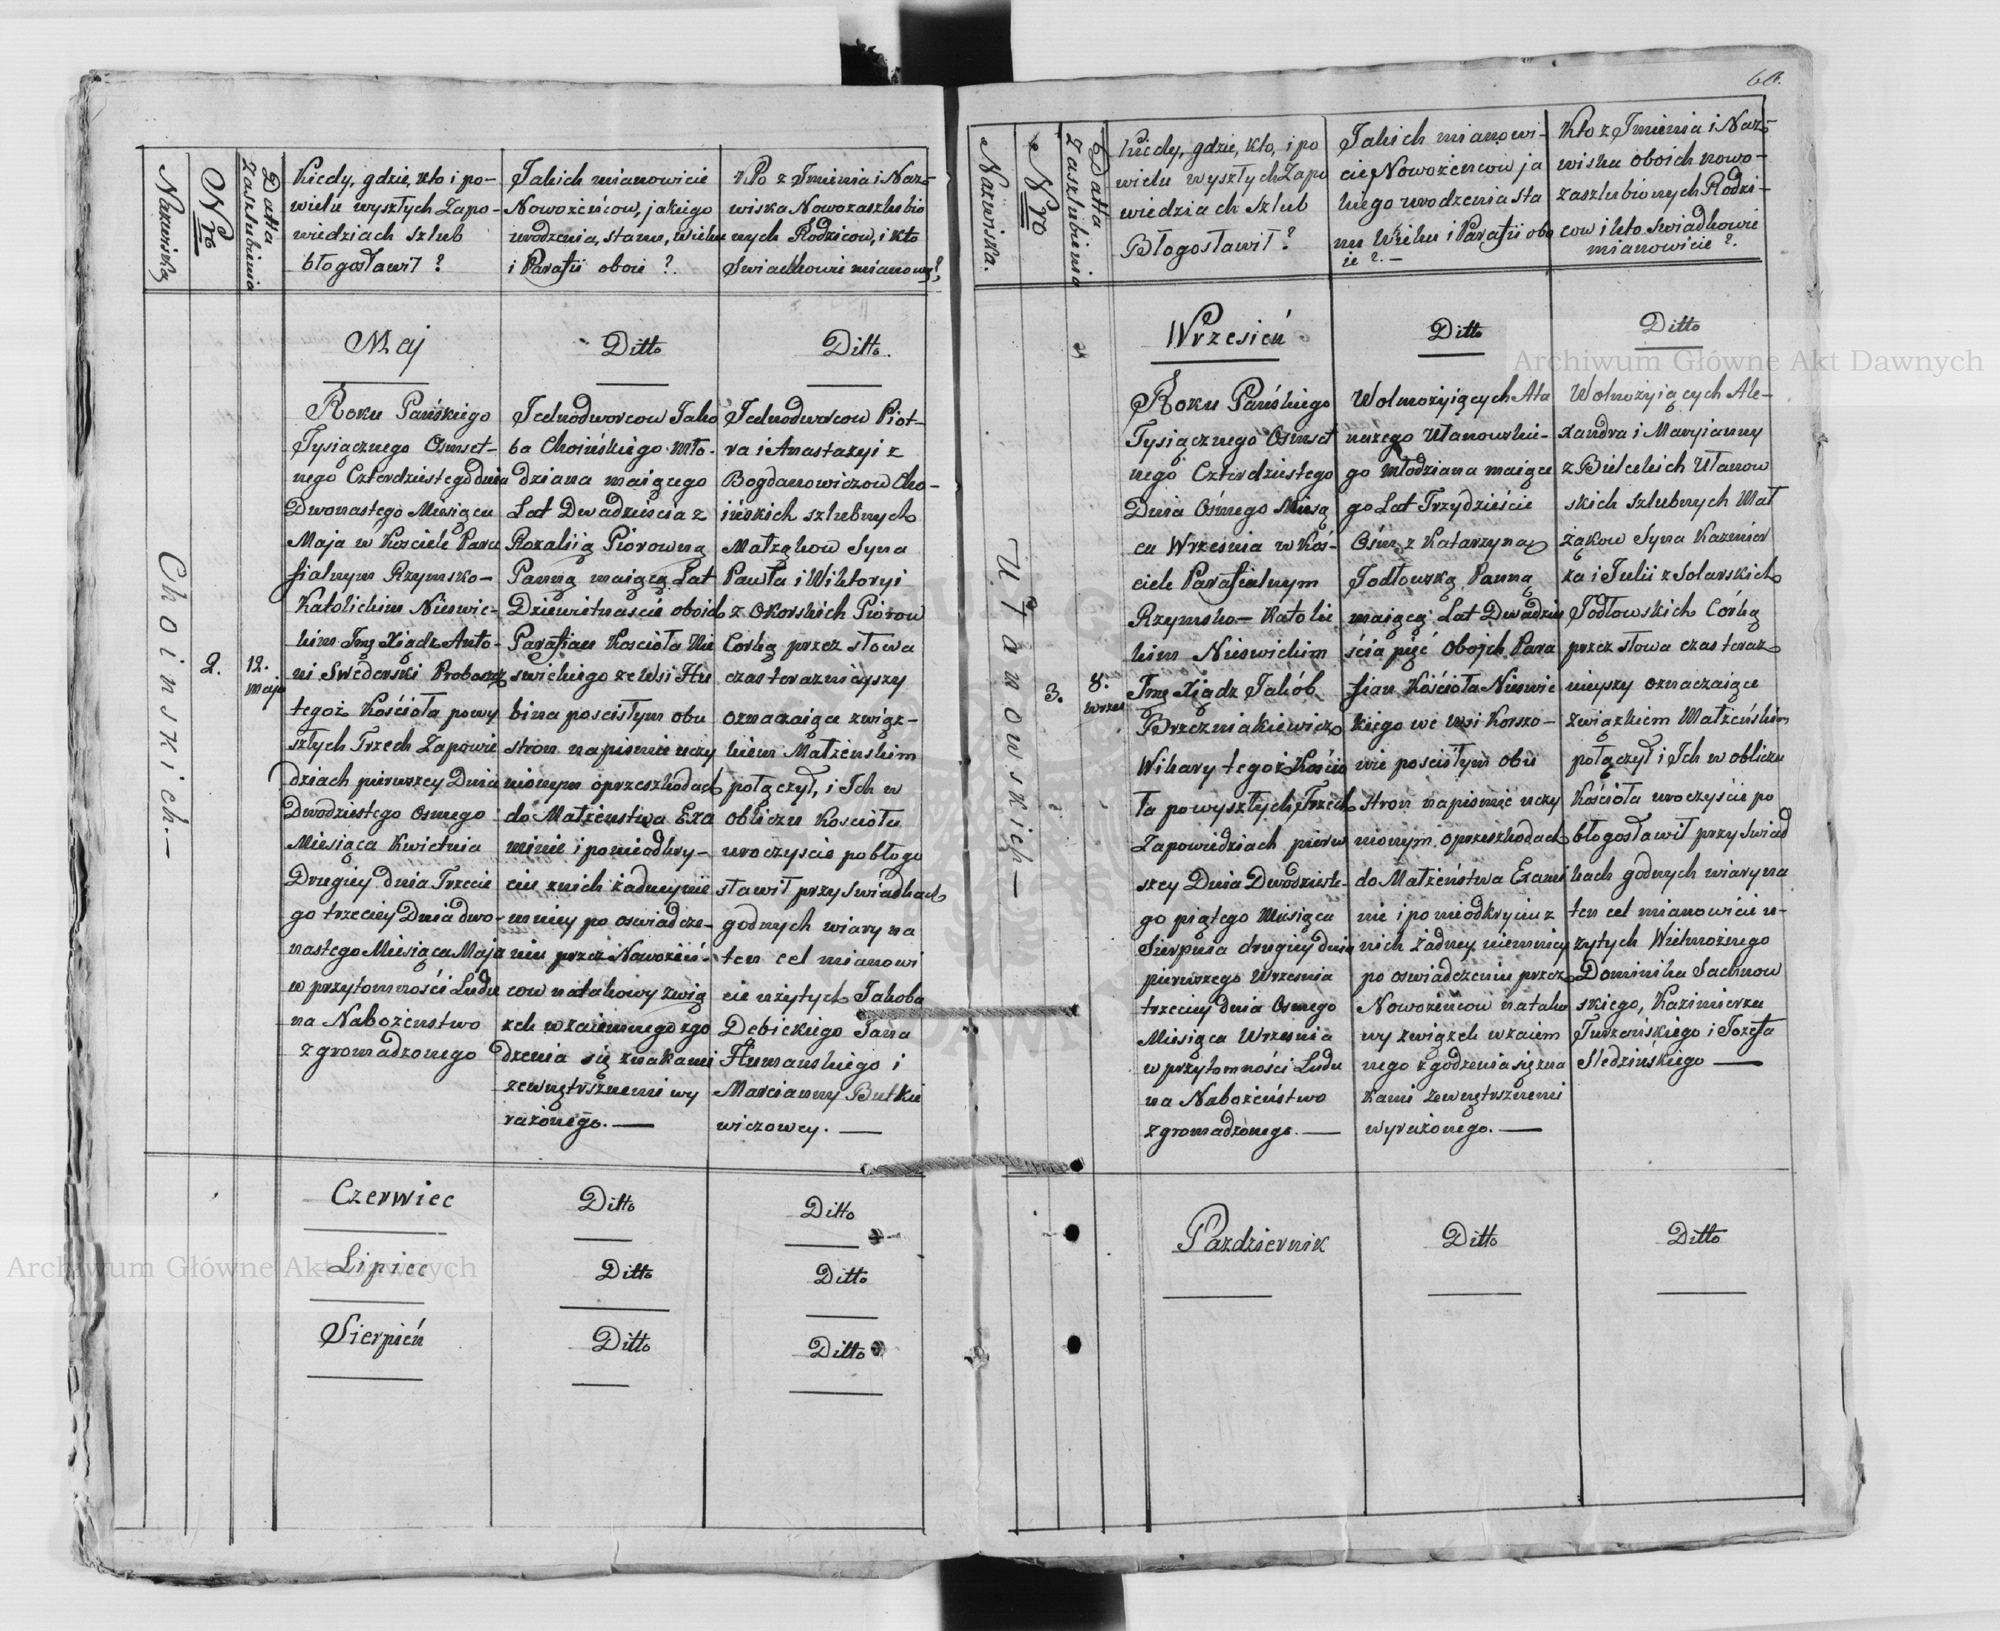 Nazwiska
Nro
Datta Zaszlubienia
Kiedy, gdzie, kto i po-
wielu wyszłych Zapo-
wiedziach szlub
błogosławił ?
Jakich mianowicie
Nowożeńcow, jakiego
urodzenia, stanu, wieku
i Parafii oboie ?
Kto z Imienia i Naz-
wiska Nowozaszlubio
nych Rodzicow, i kto
Swiadkowie mianow:?
Maj
Ditto
Ditto.
Choinskich.—
2.
12.
maja
Roku Pańskiego
Tysiącznego Osmset-
nego Czterdziestego dnia
Dwonastego Miesiąca
Maja w Kosciele Para
fialnym Rzymsko-
Katolickim Nieswic-
kim Jmę Xiądz Anto-
ni Swiderski Proboszcz
tegoż Kościoła powy
szłych Trzech Zapowie
dziach pierwszey Dnia
Dwudziestego Osmego
Miesiąca Kwietnia
Drugiey dnia Trzecie
go trzeciey Dnia dwo-
nastego Miesiąca Maja
w przytomności Ludu
na Nabożenstwo
zgromadzonego
Jednodworcow Jako
ba Choińskiego mło-
dziana maiącego
Lat Dwadzieścia z
Rozalią Piorowną
Panną maiącą Lat
Dziewietnaście oboich
Parafian Kościoła Nie
swickiego ze Wsi Hu
bina poscisłym obu
stron napismie uczy
nionym oprzeszkodach
do Małżeństwa Exa
minie i ponieodkry-
ciu znich żadney nie
mniey po oswiadcze-
niu przez Nowożeń-
cow natakowy zwią
zek wzaiemnego zgo
dzenia się znakami
zewnętrznemi wy
rażonego.—
Jednodworcow Piot-
ra i Anastazyi z
Bogdanowiczow Cho-
ińskich szlubnych
Małząkow Syna
Pawła i Wiktoryi
z Okorskich Piorow
Corką przez słowa
czas terazn​ieyszy
oznaczaiące związ-
kiem Małżenskim
połączył, i Ich w
obliczu Kosciołu
uroczyscie pobłogo
sławił przy Swiadkach
godnych wiary na
ten cel mianowi
cie użytych Jakoba
Debickiego Jana
Humanskiego i
Marcianny Butkie
wiczowey.—
Czerwiec
Ditto
Ditto
Lipiec
Ditto
Ditto
Sierpień
Ditto
Ditto
60.
Nazwiska.
Nro
Datta Zaszlubienia
Kiedy, gdzie, kto, i po
wielu wyszłych Zapo
wiedziach Szlub
Błogosławił ?
Jakich mianowi-
cie Nowożencow ja
kiego urodzenia sta
nu Wieku i Parafii obo
ie ?.—
Kto z Imienia i Naz-
wiska oboich nowo-
zaszlubionych Rodzi-
cow i kto Swiadkowie
mianowicie ?.
Wrzesień
Ditto
Ditto
Ułanowskich—
3.
8.
wrześ
Roku Pańskiego
Tysiącznego Osmset
nego Czterdziestego
Dnia Osmego Miesią
ca Wrzesnia w Koś-
ciele Parafialnym
Rzymsko-Katolic
kim Nieswickim
Jmę Xiądz Jakób
Brzezniakiewicz
Wikary tegoż Koscio
ła powyszłych Trzech
Zapowiedziach pierw
szey Dnia Dwodzieste-
go piątego Miesiąca
Sierpnia drugiey dnia
pierwszego Wrzesnia
trzeciey dnia Osmego
Miesiąca Wrzesnia
w przytomności Ludu
na Nabożeństwo
zgromadzonego.—
Wolnożyiących Ała
nazego Ułanowskie-
go młodziana maiące
go Lat Trzydzieście
Ośm z Katarzyną
Jodłowską Panną
maiącą Lat Dwadzie
ścia pięć Oboich Para
fian Kościoła Nieswic
kiego we wsi Korszo-
wie poscisłym obu
stron napismie uczy
nionym oprzeszkodach
do Małżeństwa Exami
nie i po nieodkryciu z
nich żadney niemniey
po oswiadczeniu przez
Nowożencow natako
wy związek wzaiem
nego zgodzenia się zna
kami zewnętrznemi
wyrażonego.—
Wolnożyiących Ale-
xandra i Maryianny
z Bielickich Ułanow
skich szlubnych Mał
żąkow Syna Kazmier
za i Julii z Solarskich
Jodłowskich Corką
przez słowa czas teraz
nieyszy oznaczaiące
związkiem Małżeńskim
połączył i Ich w obliczu
Kościoła uroczyscie po
błogosławił przy Swiad
kach godnych wiary na
ten cel mianowicie u-
żytych Wielmożnego
Dominika Sachnow
skiego, Kazimierza
Turzańskiego i Jozefa
Sledzińskiego—
Pazdziernik
Ditto
Ditto
Archiwum Główne Akt Dawnych
Archiwum Główne Akt Dawnych